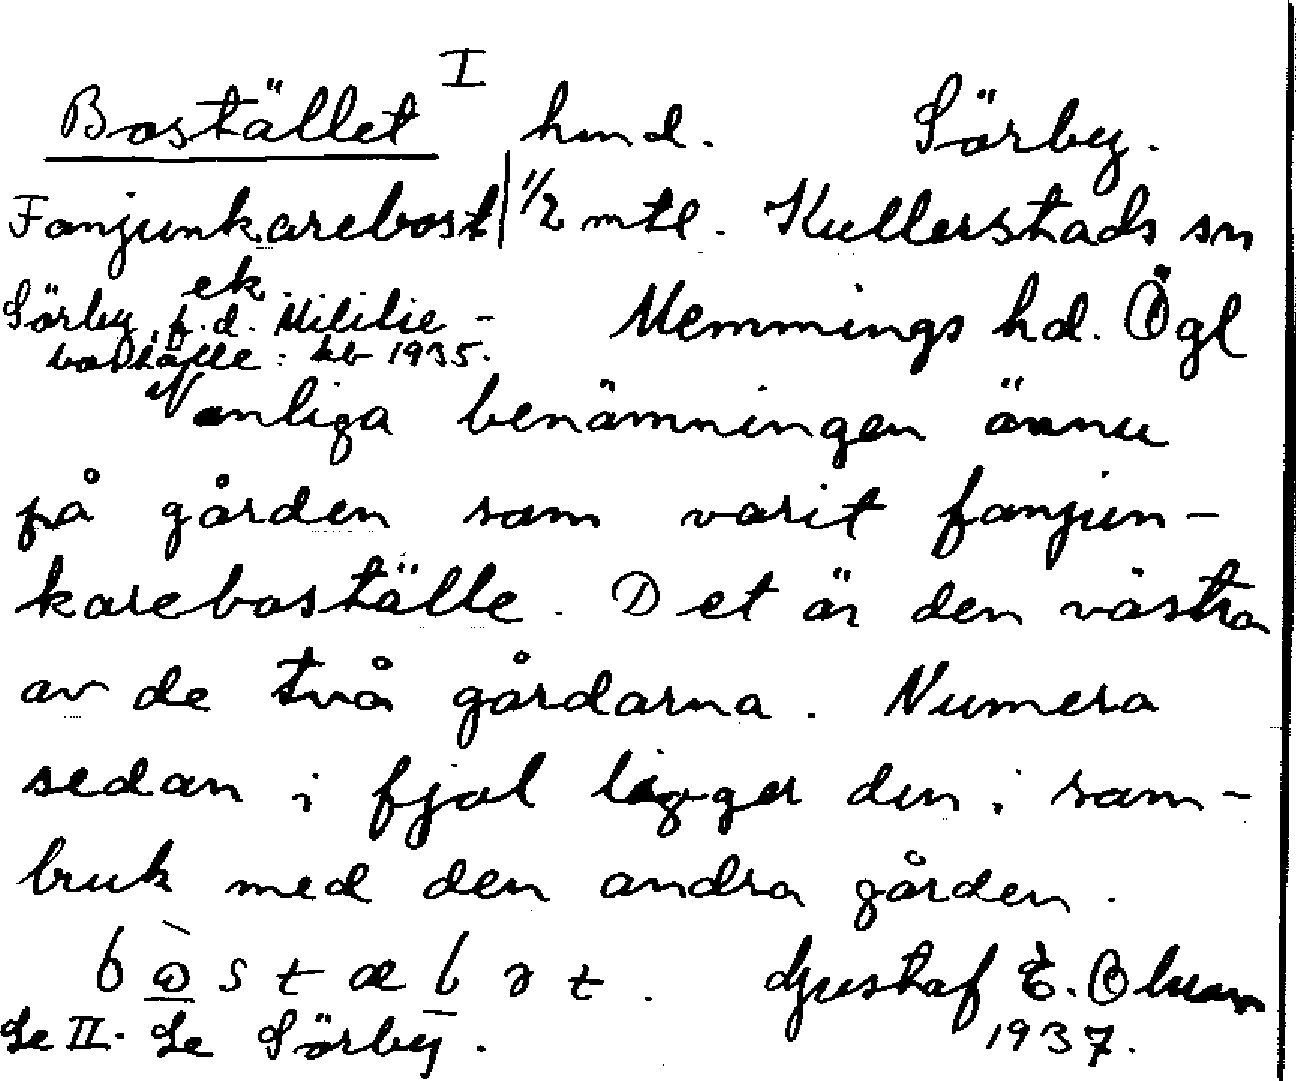 I
Bostället hmd. Sörby.
Fanjunkarebost 1/2 mtl. Kullerstads sn
ek.
Sörby, f.d. Militie- Memmings hd. Ögl
boställe: kb 1935.
Vanliga benämningen ännu
på gården som varit fanjun-
kareboställe. Det är den västra
av de två gårdarna. Numera
sedan i fjol ligger den i sam-
bruk med den andra gården.
Gustaf E.
Se II. Se Sörby. 1937.